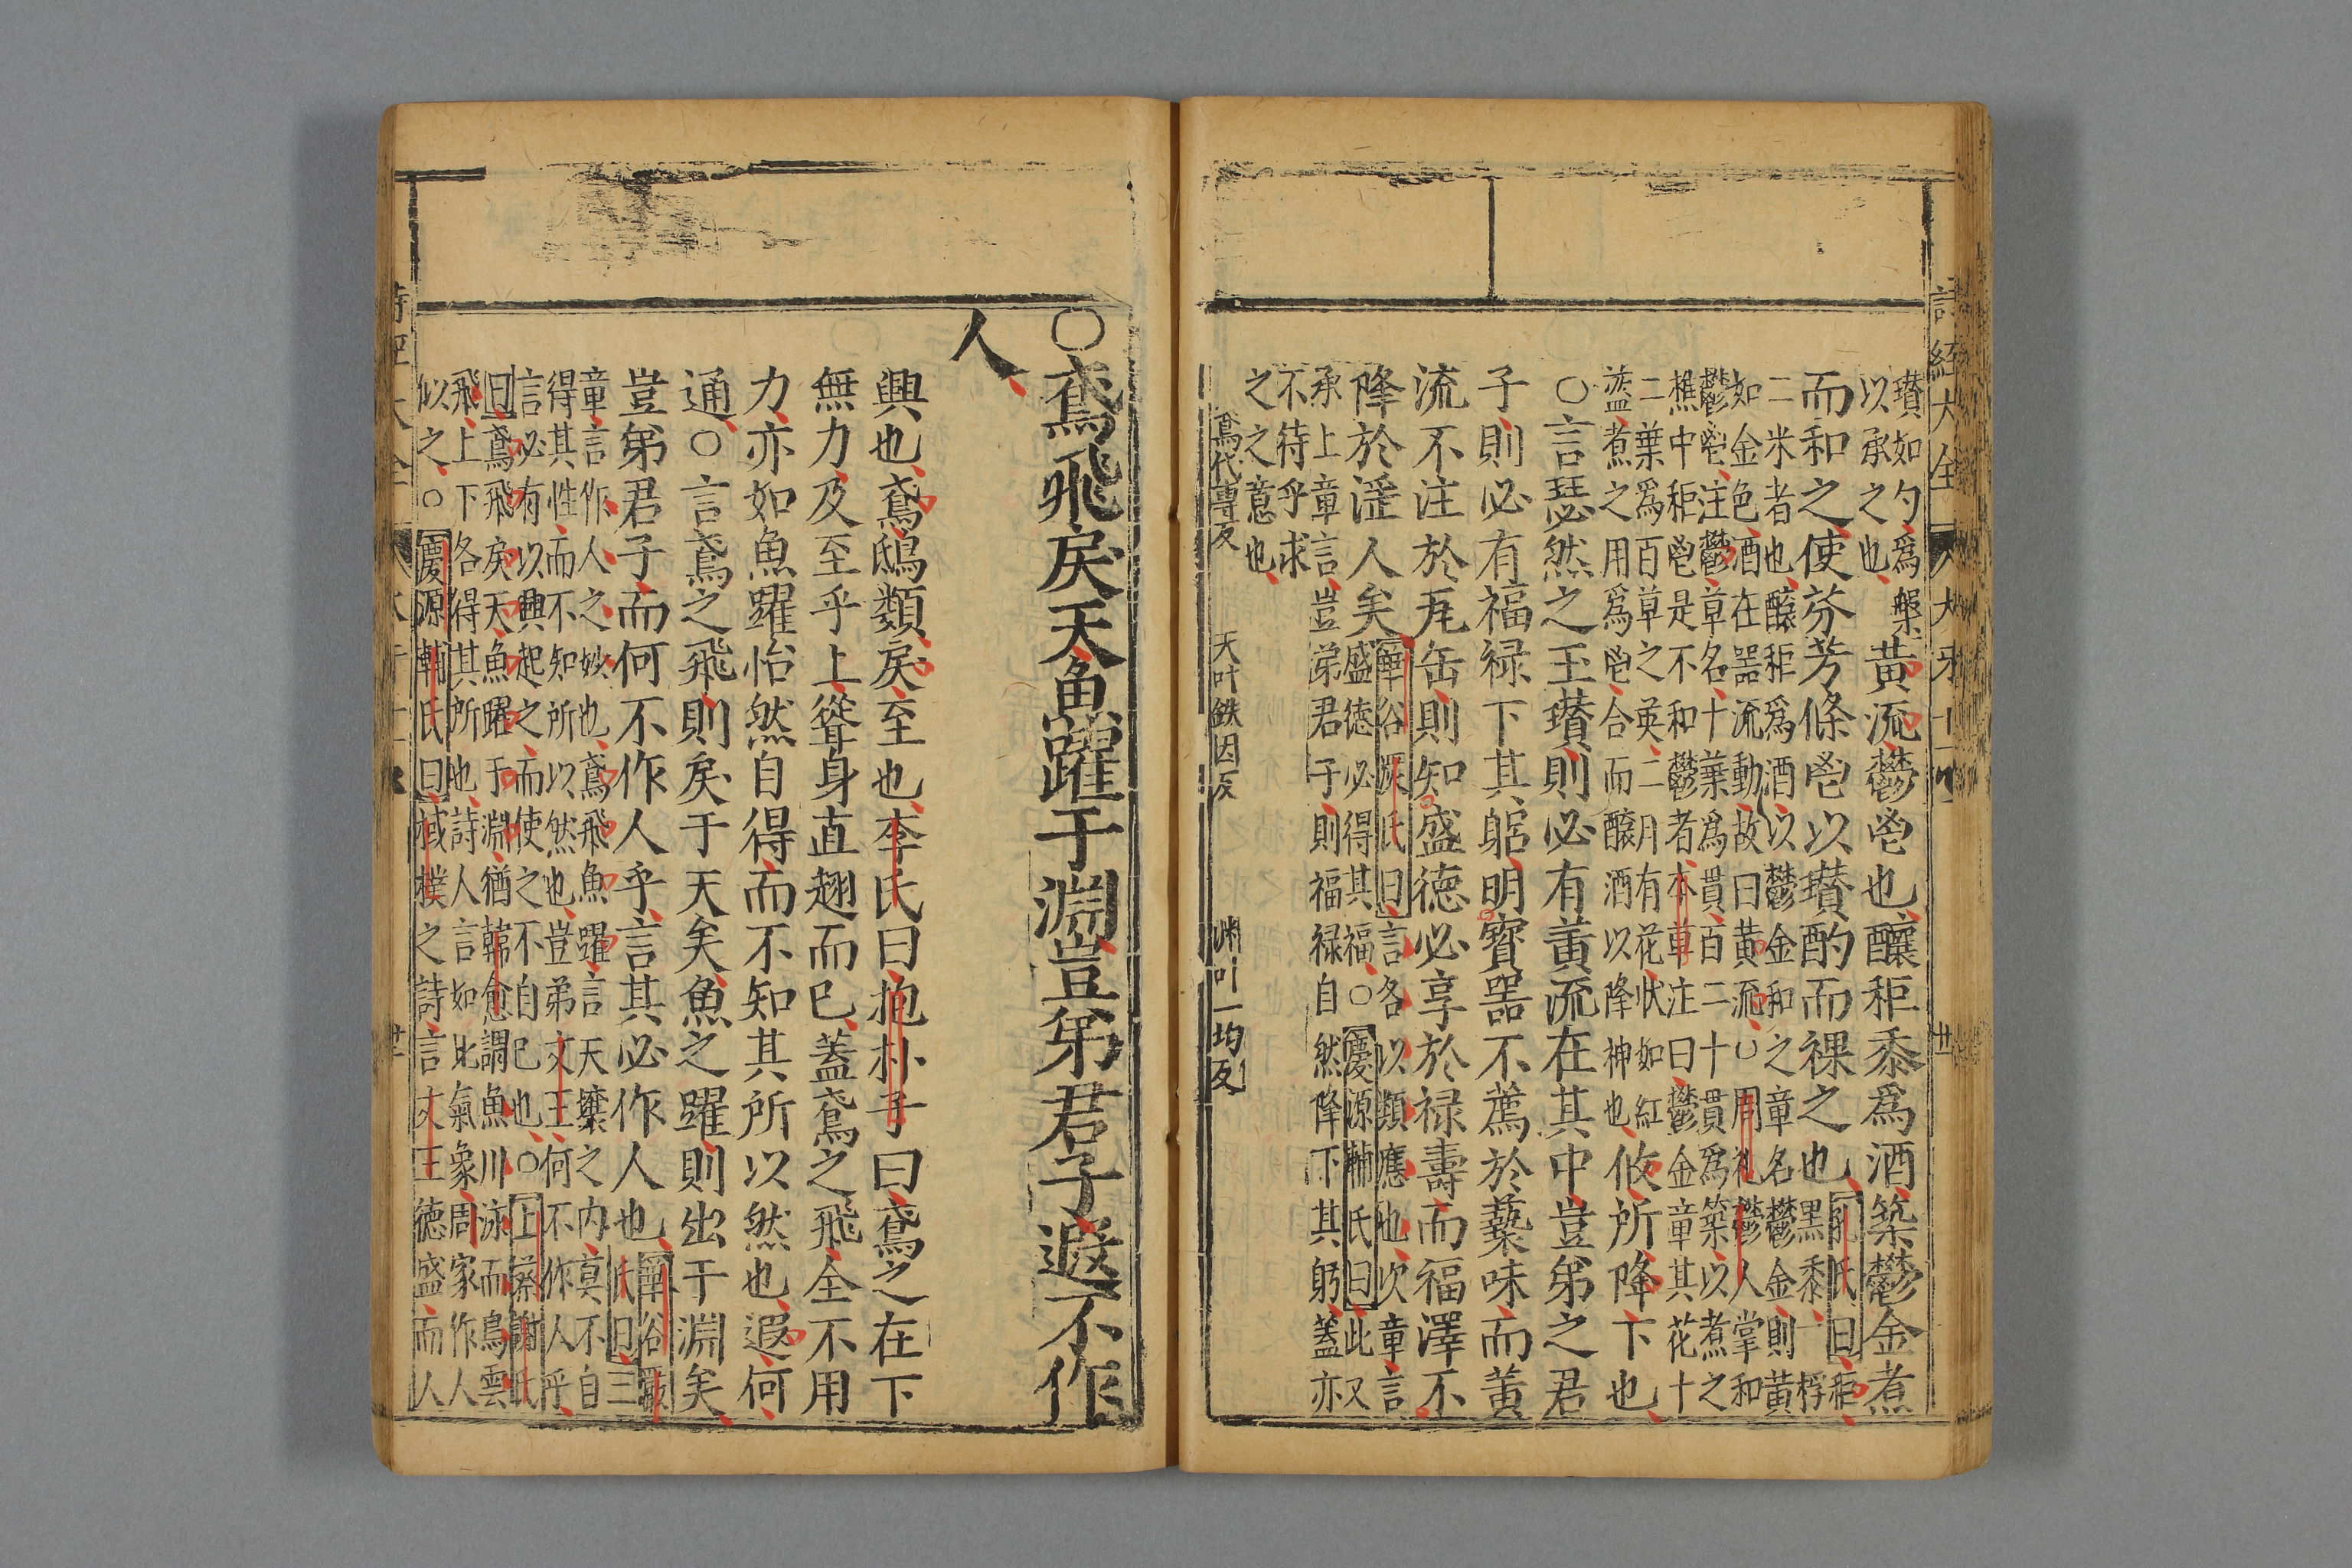 瓚如勺爲槃
以承之也
黃流鬱鬯也釀秬黍爲酒築鬱金煮
而和之使芬芳條鬯以瓚酌而祼之也
孔氏曰秬
黑黍一稃
二米者也釀秬爲酒以鬱金和之章名鬱金則黄
如金色酒在器流動故曰黄流○周礼鬱人掌和
鬱鬯注鬱草名十葉爲貫百二十貫爲築以煮之
樵中秬鬯是不和鬱者本草注曰鬱金章其花十
二葉爲百草之英二月有花狀如紅
藍煮之用爲鬯合而釀酒以降神也
攸所降下也
○言瑟然之玉瓚則必有黄流在其中豈弟之君
子則必有福禄下其躬明寳器不薦於䙝味而黄
流不注於瓦缶則知盛徳必享於禄壽而福澤不
降於淫人矣
華谷嚴氏曰言各以類應也次章言
盛徳必得其福○慶源輔氏曰此又
承上章言豈弟君子則福禄自然降下其躬蓋亦
不待乎求
之之意也
鳶代專反 天叶鉄因反 渊叶一均反
○鳶飛戾天魚躍于淵豈弟君子遐不作
人
興也鳶鴟類戾至也李氏曰抱朴子曰鳶之在下
無力及至乎上聳身直翅而已蓋鳶之飛全不用
力亦如魚躍怡然自得而不知其所以然也遐何
通○言鳶之飛則戾于天矣魚之躍則出于淵矣
豈弟君子而何不作人乎言其必作人也
華谷嚴
氏曰三
章言作人之妙也鳶飛魚躍言天壤之内莫不自
得其性而不知所以然也豈弟文王何不作人乎
言必有以興起之而使之不自已也○上蔡謝氏
曰鳶飛戾天魚躍于淵猶韓愈謂魚川泳而鳥雲
飛上下各得其所也詩人言如此氣象周家作人
似之○慶源輔氏曰棫樸之詩言文王徳盛而人